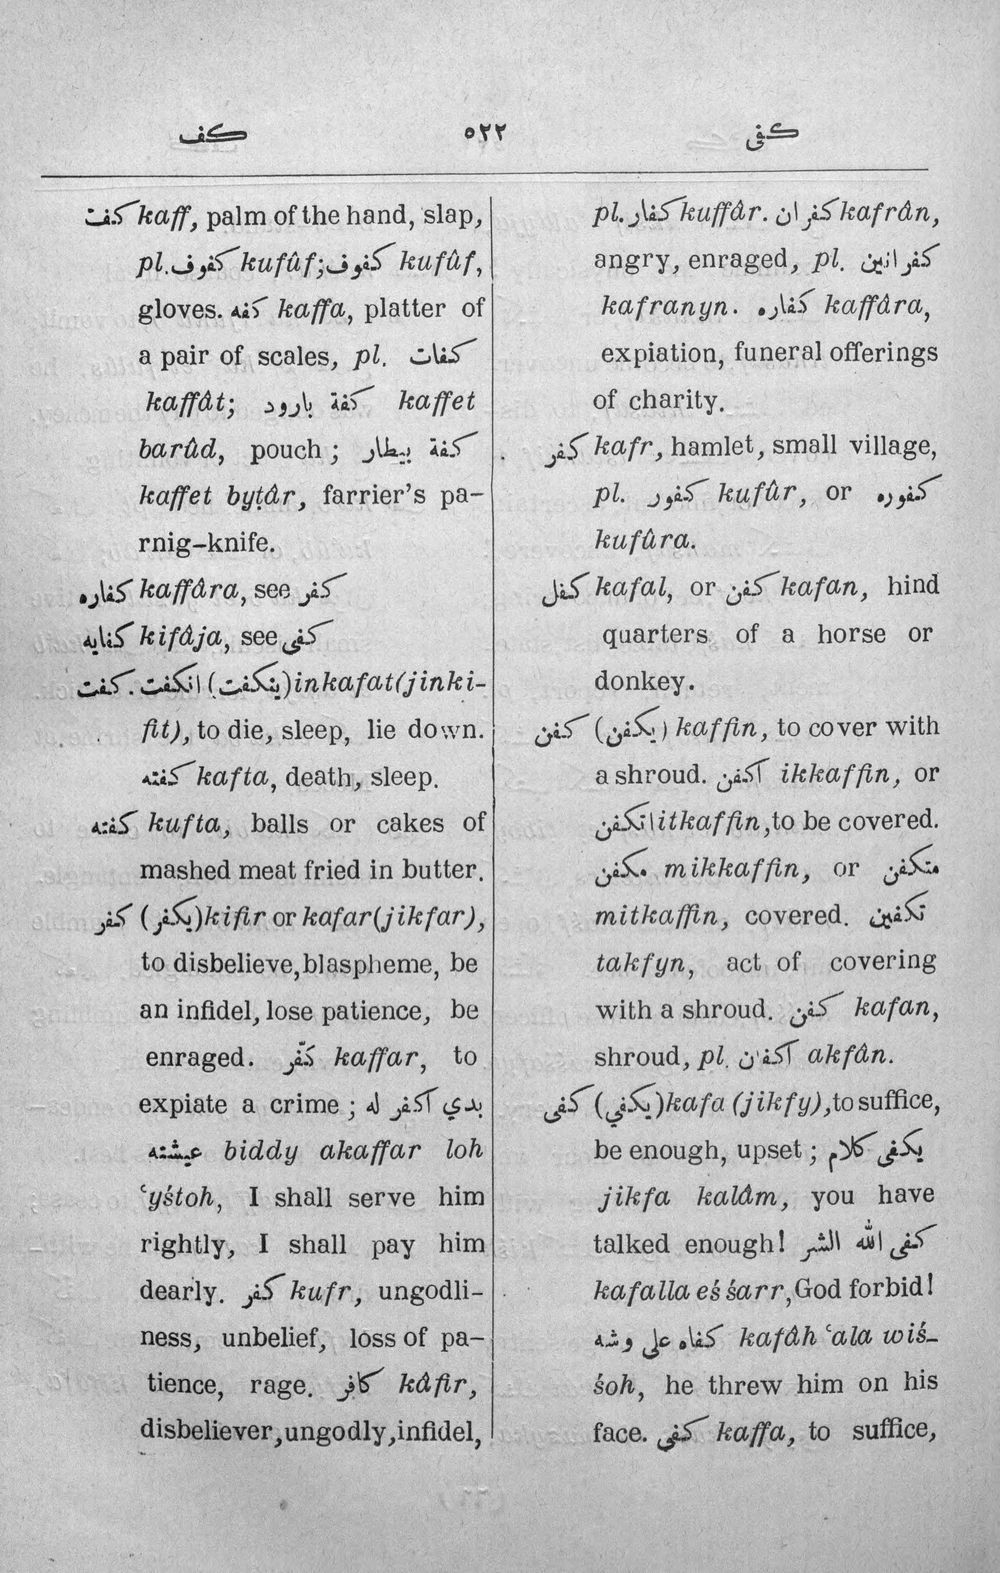 كف ٥٢٢ كفى
كفت kaff, palm of the hand, slap,
pl. كفوف kufûf; كفوف kufûf,
gloves. كفه kaffa, platter of
a pair of scales, pl. كفات
kaffât; كفة بارود kaffet
barûd, pouch; كفة بيطار
kaffet byṭâr, farrier's pa-
rnig-knife.
كفاره kaffâra, see كفر
كفايه kifâja, see كفى
كفت. انكفت (ينكفت) inkafat (jinki-
fit), to die, sleep, lie down.
كفته kafta, death, sleep.
كفته kufta, balls or cakes of
mashed meat fried in butter.
كفر (يكفر) kifir or kafar (jikfar),
to disbelieve, blaspheme, be
an infidel, lose patience, be
enraged. كفّر kaffar, to
expiate a crime; بدي اكفر له
عيشته biddy akaffar loh
ʿyśtoh, I shall serve him
rightly, I shall pay him
dearly. كفر kufr, ungodli-
ness, unbelief, loss of pa-
tience, rage. كافر kâfir,
disbeliever, ungodly, infidel,
pl. كفار kuffâr. كفران kafrân,
angry, enraged, pl. كفرانين
kafranyn. كفاره kaffâra,
expiation, funeral offerings
of charity.
كفر kafr, hamlet, small village,
pl. كفور kufûr, or كفوره
kufûra.
كفل kafal, or كفن kafan, hind
quarters of a horse or
donkey.
كفن (يكفن) kaffin, to cover with
a shroud. اكفن ikkaffin, or
اتكفن itkaffin, to be covered.
مكفن mikkaffin, or متكفن
mitkaffin, covered. تكفين
takfyn, act of covering
with a shroud. كفن kafan,
shroud, pl. اكفان akfân.
كفى (يكفي) kafa (jikfy), to suffice,
be enough, upset; يكفى كلام
jikfa kalâm, you have
talked enough! كفى الله الشر
kafalla eś śarr, God forbid!
كفاه على وشه kafâh ʿala wiś-
śoh, he threw him on his
face. كفى kaffa, to suffice,